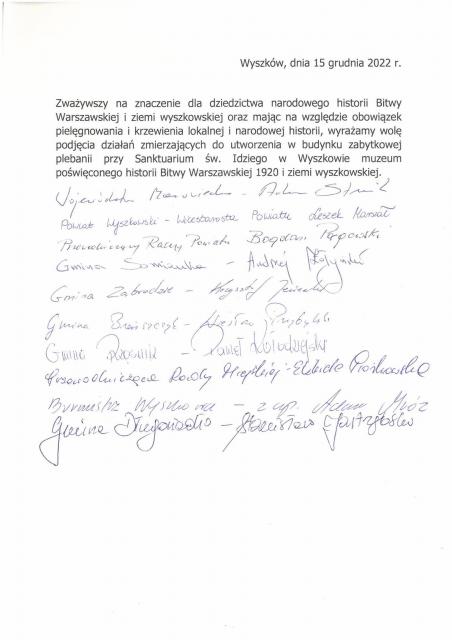 Wyszków, dnia 15 grudnia 2022 r.
Zważywszy na znaczenie dla dziedzictwa narodowego historii Bitwy
Warszawskiej i ziemi wyszkowskiej oraz mając na względzie obowiązek
pielęgnowania i krzewienia lokalnej i narodowej historii, wyrażamy wolę
podjęcia działań zmierzających do utworzenia w budynku zabytkowej
plebanii przy Sanktuarium św. Idziego w Wyszkowie muzeum
poświęconego historii Bitwy Warszawskiej 1920 i ziemi wyszkowskiej.
Województwo Mazowieckie - Adam
Powiat Wyszkowski - Wicestarosta Powiatu Leszek Marszał
Przewodniczący Rady Powiatu Bogdan
Gmina Somianka - Andrzej Żołyński
Gmina Zabrodzie - Krzysztof
Gmina Brańszczyk - Wiesław Przybylski
Gmina Rząśnik - Paweł Kołodziejski
Przewodnicząca Rady Miejskiej - Elżbieta Piórkowska
Burmistrz Wyszkowa - z up. Adam Mróz
Gmina Długosiodło - Stanisław Jastrzębski